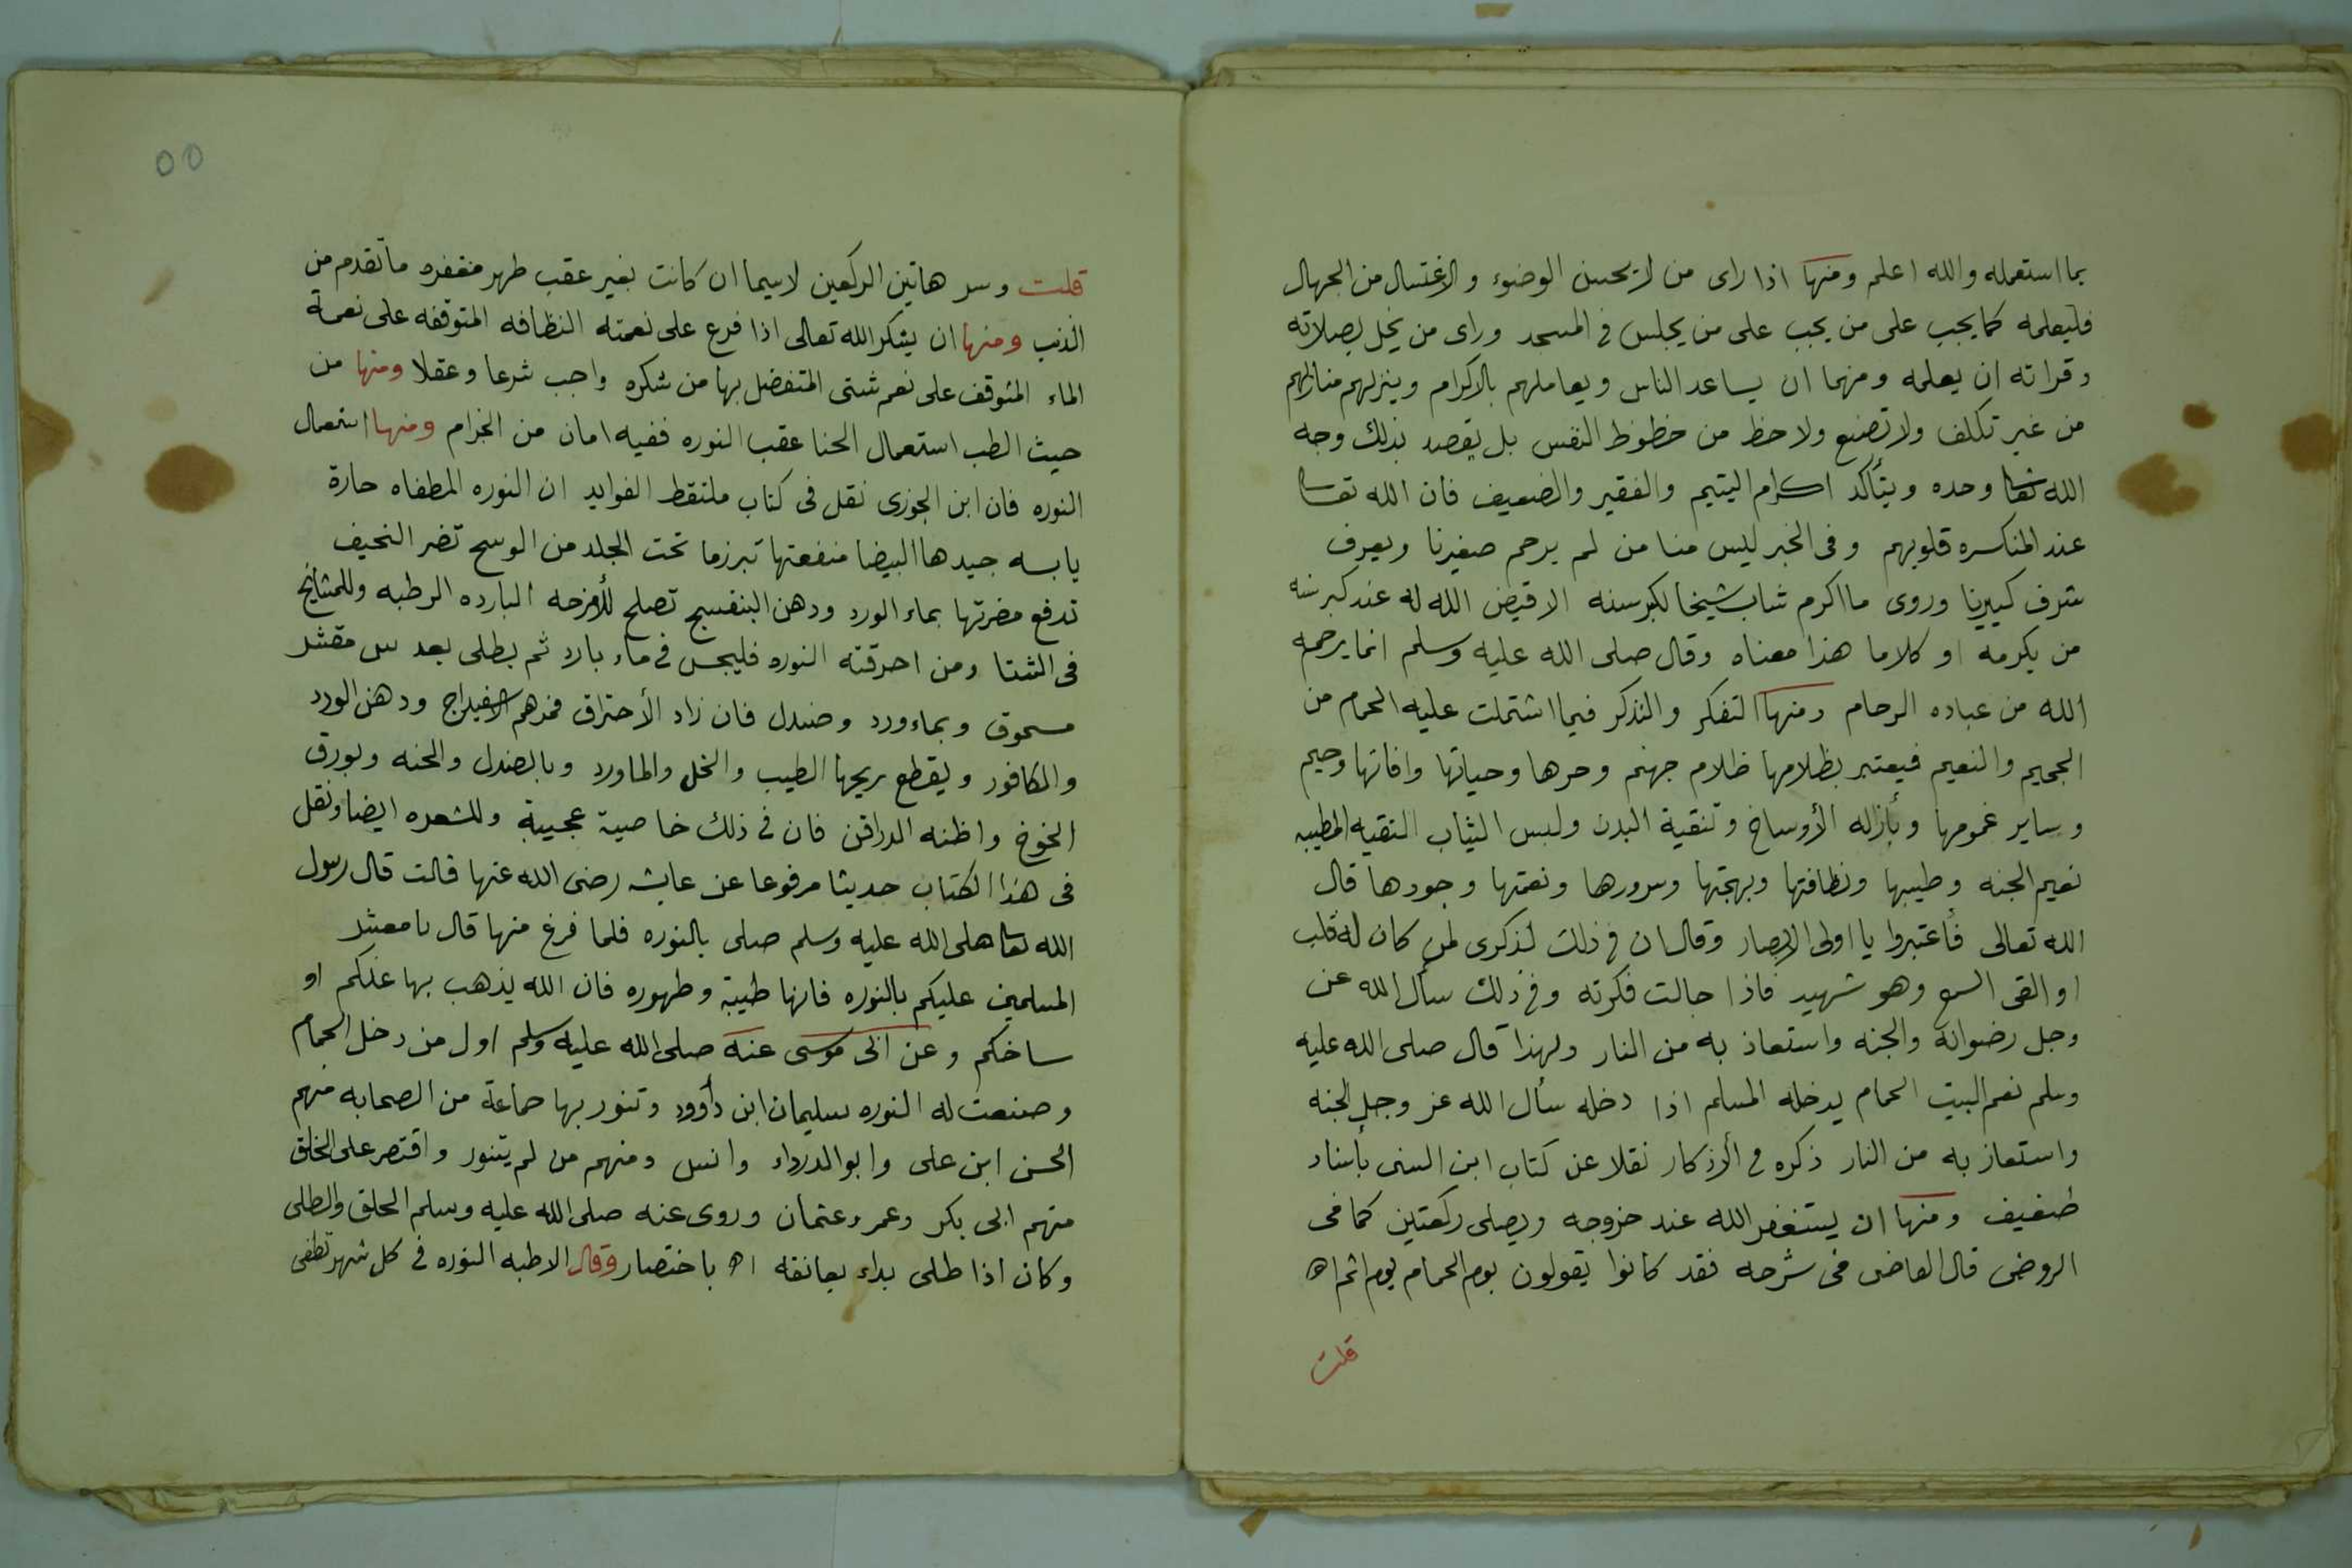 بما استعمله والله اعلم ومنها اذا راى من لا يحسن الوضوء والاغتسال من الجهال
فليعلمه كما يجب على من يجب على من يجلس في المسجد وراى من يخل بصلاته
وقراته ان يعلمه ومنها ان يساعد الناس ويعاملهم بالاكرام وينزلهم منازلهم
من غير تكلف ولا تصنع ولا حظ من حظوظ النفس بل يقصد بذلك وجه
الله تعا وحده ويتأكد اكرام اليتيم والفقير والضعيف فان الله تعا
عند المنكسره قلوبهم وفى الخبر ليس منا من لم يرحم صغيرنا ويعرف
شرف كبيرنا وروى ما اكرم شاب شيخا لكبر سنه الا قيض الله له عند كبر سنه
من يكرمه او كلاما هذا معناه وقال صلى الله عليه وسلم انما يرحم
الله من عباده الرحام ومنها التفكر والتذكر فيما اشتملت عليه الحمام من
الجحيم والنعيم فيعتبر بظلامها ظلام جهنم وحرها وحياتها وافاتها وحيم
وساير غمومها وبأزاله الأوساخ وتنقية البدن ولبس الثياب النقيه المطيبه
نعيم الجنه وطيبها ونظافتها وبهجتها وسرورها ونعمتها وجودها قال
الله تعالى فأعتبروا يا اولى الابصار وقال ان في ذلك لذكرى لمن كان له قلب
او القى السمع وهو شهيد فاذا جالت فكرته وفي ذلك سأل الله عز
وجل رضوانه والجنه واستعاذ به من النار ولهذا قال صلى الله عليه
وسلم نعم البيت الحمام يدخله المسلم اذا دخله سأل الله عز وجل الجنه
واستعاذ به من النار ذكره في الأذكار نقلا عن كتاب ابن السنى بأسناد
ضعيف ومنها ان يستغفر الله عند خروجه ويصلى ركعتين كما فى
الروض قال القاضى فى شرحه فقد كانوا يقولون يوم الحمام يوم اثم اه
قلت
٥٥
قلت وسر هاتين الركعين لاسيما ان كانت بغير عقب طهر مغفره ما تقدم من
الذنب ومنها ان يشكر الله تعالى اذا فرغ على نعمته النظافه المتوقفه على نعمة
الماء المتوقف على نعم شتى المتفضل بها من شكره واجب شرعا وعقلا ومنها من
حيث الطب استعمال الحنا عقب النوره ففيه امان من الجزام ومنها استعمال
النوره فان ابن الجوزى نقل فى كتاب ملتقط الفوايد ان النوره المطفاه حارة
يابسه جيدها البيضا منفعتها تبرزما تحت الجلد من الوسح تضر النحيف
تدفع مضرتها بماء الورد ودهن البنفسج تصلح للأمزحه البارده الرطبه وللمشايخ
فى الشتا ومن احرقته النوره فليجس في ماء بارد ثم يطلى بعد مقشر
مسحوق وبماء ورد وصندل فان زاد الأحتراق فمرهم الاسفيداج ودهن الورد
والكافور ويقطع ريحها الطيب والخل والماورد وبالصندل والحنه وبورق
الخوخ واظنه الدراقن فان في ذلك خاصية عجيبة وللشعره ايضا ونقل
فى هذا الكتاب حديثا مرفوعا عن عايشه رضى الله عنها قالت قال رسول
الله تعا صلى الله عليه وسلم صلى بالنوره فلما فرغ منها قال يا معشر
المسلمين عليكم بالنوره فانها طيبة وطهوره فان الله يذهب بها عنكم او
ساخكم وعن ابى موسى عنه صلى الله عليه وسلم اول من دخل الحمام
وصنعت له النوره سليمان ابن دأوود وتنور بها حماعة من الصحابه منهم
الحسن ابن على وابو الدرداء وانس ومنهم من لم يتنور واقتصر على الحلق
منهم ابى بكر وعمر وعتمان وروى عنه صلى الله عليه وسلم الحلق والطلى
وكان اذا طلى بداء بعانقه اه باختصار وقال الاطبه النوره في كل شهر تطفى